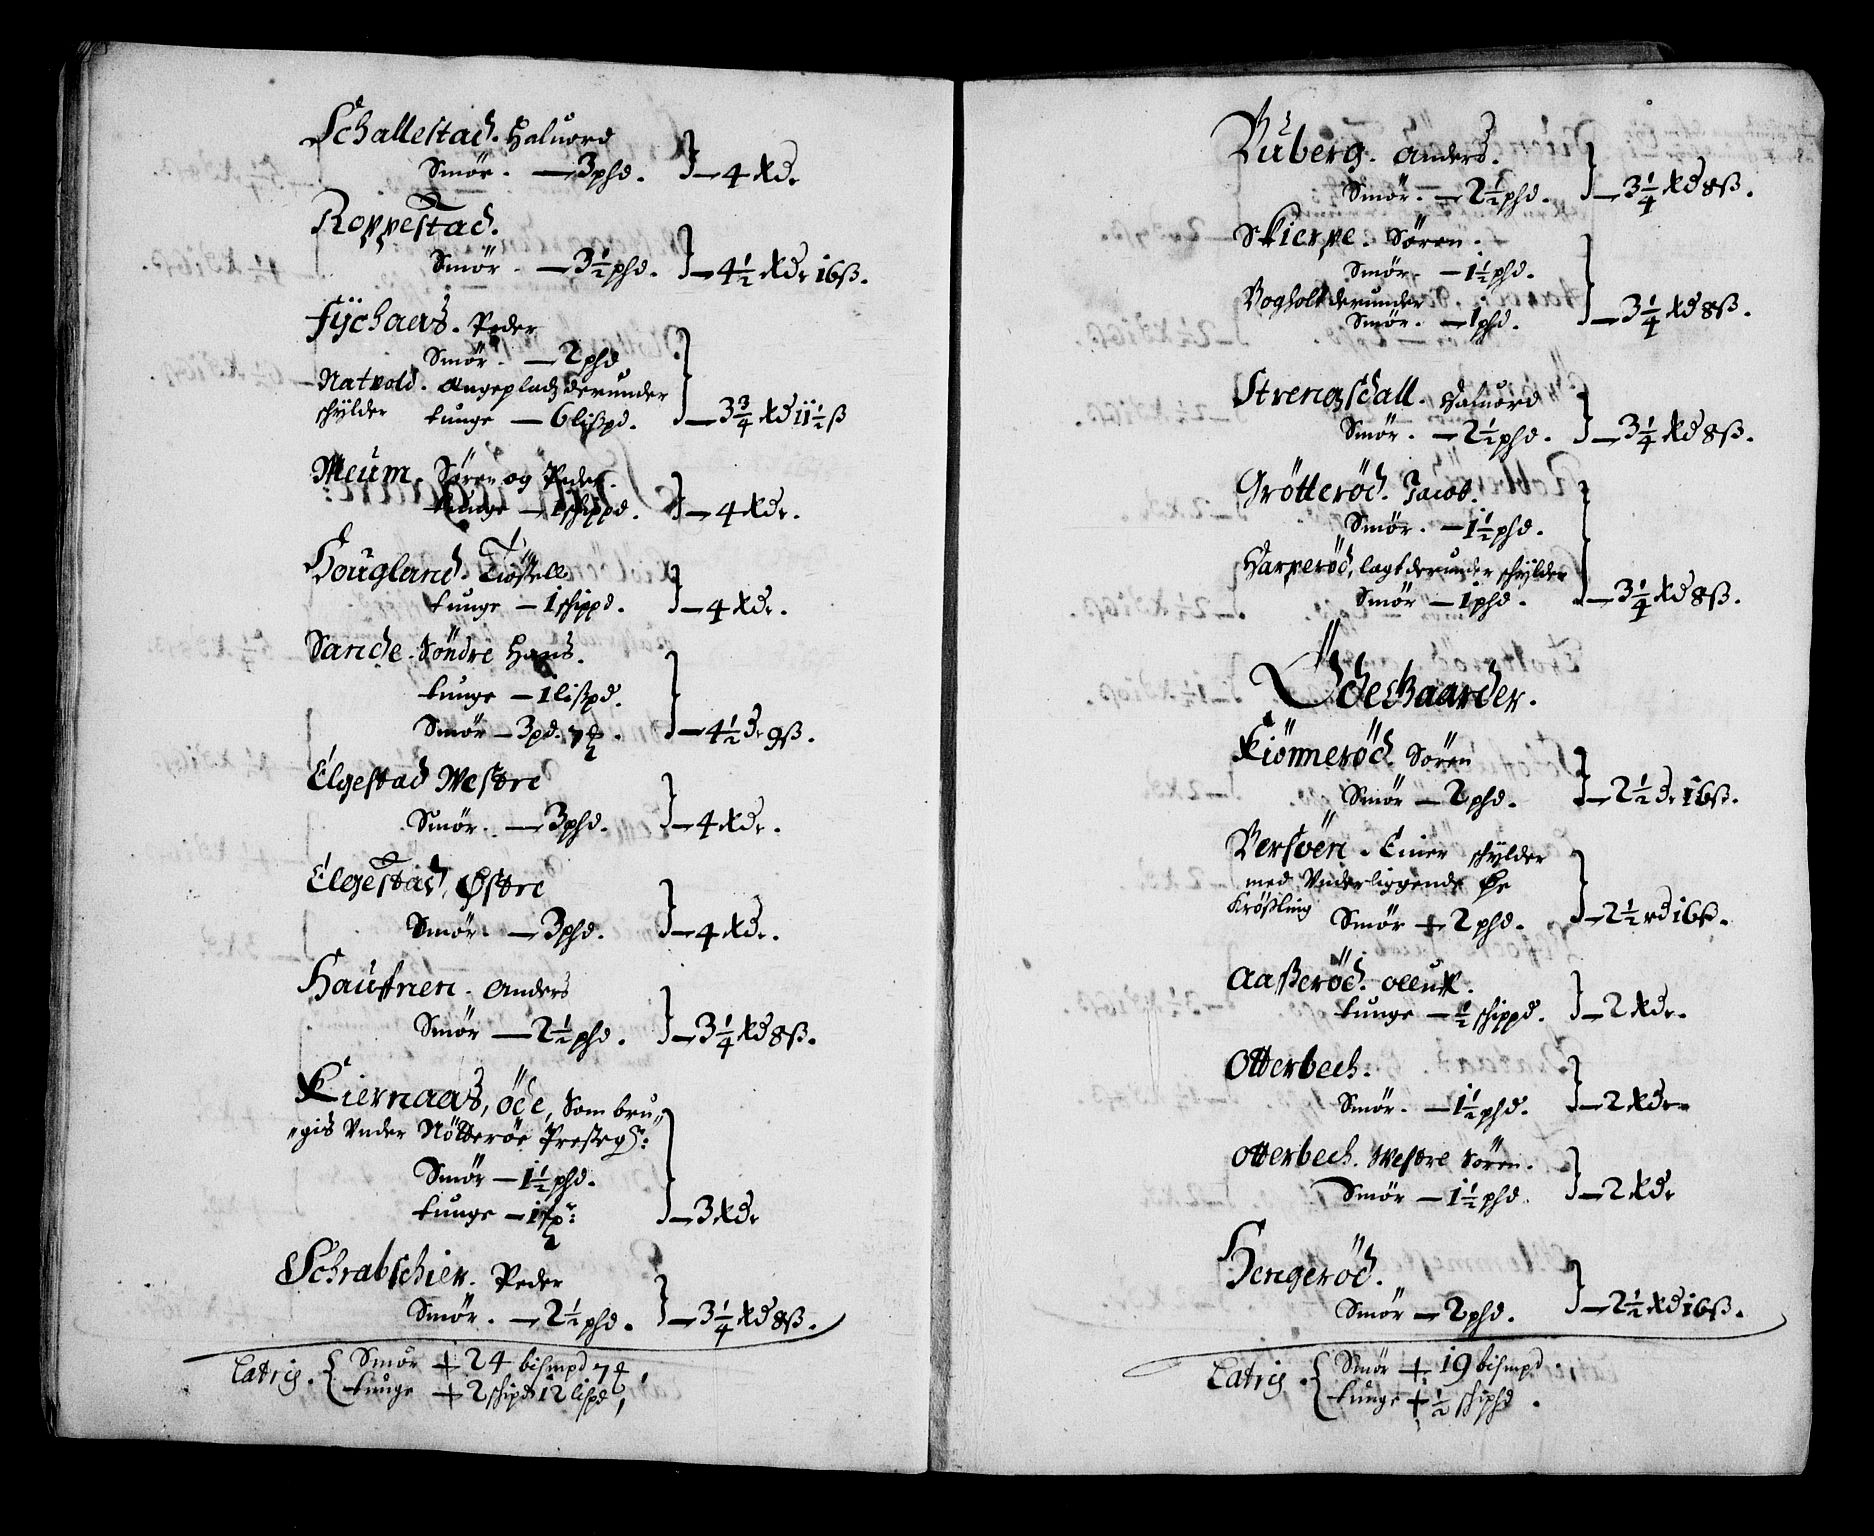 Schallestad. Haluord
Smör. — 3 phd. — 4 Rdr
Roppestad.
Smör. — 3½ phd. — 4½ Rdr 16ß.
Fÿchaas. Peder
Smör. — 2 phd
Natvold. Angeplads derunder
schÿlder tunge — 6 lißpd. — 3¾ Rd 11½ ß
Meum. Sören og Peder.
tunge — 1 schippd. — 4 Rdr.
Hougland.
tunge — 1 schippd. — 4 Rdr.
Sande. Söndre Hans.
tunge — 1 lißpd.
Smör — 3 pd. 7 — 4½ dr 9ß.
Elgestad Westre
Smör. — 3 phd. — 4 Rdr.
Elgestad, Østre
Smör. — 3 phd. — 4 Rdr.
Haufnen. Anders
Smör — 2½ phd. — 3¼ Rd 8ß.
Kiernaas, öde, Som bru„
„gis Vnder Nötteröe Presteg:
Smör — 1½ phd.
tunge — 1 — 3 Rdr
Schrabschier. Peder
Smör. — 2½ phd. — 3¼ Rd 8ß.
Latris. Smör + 24 bismpd 7
tunge + 2 schipd 12 lispd,
Ruberg. Anders.
Smör. — 2½ phd. — 3¼ Rd 8ß.
Skierpe. Sören.
Smör. — 1½ phd.
Vogholt derunder
Smör. — 1 phd. — 3¼ Rd 8ß.
Strengsdall. Haluord
Smör. — 2½ phd. — 3¼ Rd 8ß.
Grötteröd. Jacob.
Smör. — 1½ phd.
Harperöd, lagt derunder schÿlder
Smör — 1 phd. — 3¼ Rd 8ß.
Ödegaarder.
Kiönneröd Sören
Smör — 2 phd. — 2½ dr 16ß.
Versven. Einer schÿlder
med Vnderliggende Øe
Krößling Smör + 2 phd. — 2½ rd 16ß.
Aaßeröd. Olluf.
tunge — ½ schippd. — 2 Rdr.
Otterbech.
Smör. — 1½ phd. — 2 Rdr
Otterbech. Westre Sören.
Smör — 1½ phd. — 2 Rdr
Hengeröd.
Smör — 2 phd. — 2½ Rd 16ß.
Latris. Smör + 19 bismpd.
tunge + ½ schiphd.